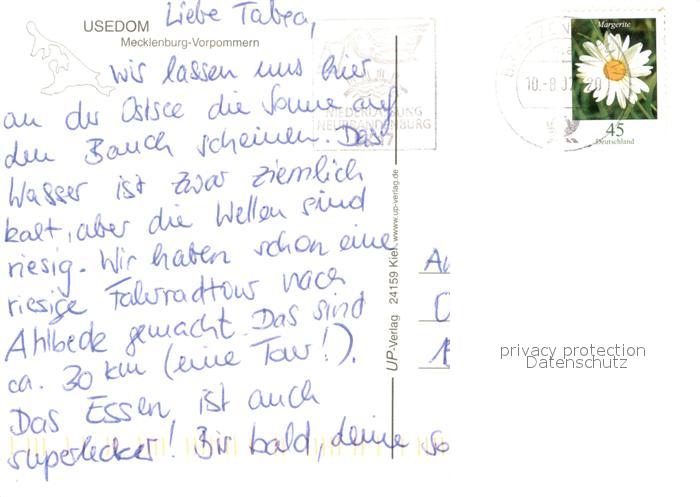 USEDOM
Mecklenburg-Vorpommern
Liebe Tabea,
wir lassen uns hier
an der Ostsee die Sonne auf
den Bauch scheinen. Das
Wasser ist zwar ziemlich
kalt, aber die Wellen sind
riesig. Wir haben schon eine
riesige Fahrradtour nach
Ahlbeck gemacht. Das sind
ca. 30 km (eine Tour!).
Das Essen ist auch
superlecker! Bis bald, deine So
UP-Verlag 24159 Kiel www.up-verlag.de
NIEDERLASSUNG
NEUBRANDENBURG
10.-8.07
20
Margerite
45
Deutschland
privacy protection
Datenschutz